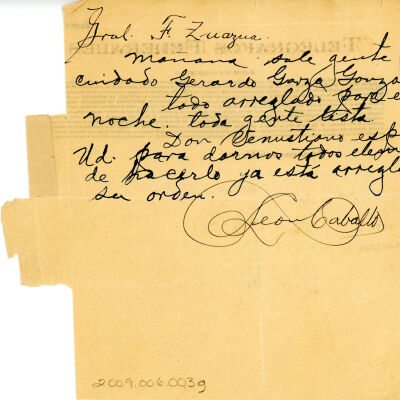 Gral. F. Zuazua.
Mañana sale gente
cuidado Gerardo Garza Gonza
todo arreglado para e
noche. toda gente lista
Don Venustiano esp
Ud. para darnos todos elem
de hacerlo ya está arregla
su orden.
Leon Caballo
2009.006.0039
TELEGRAFOS FEDERALES